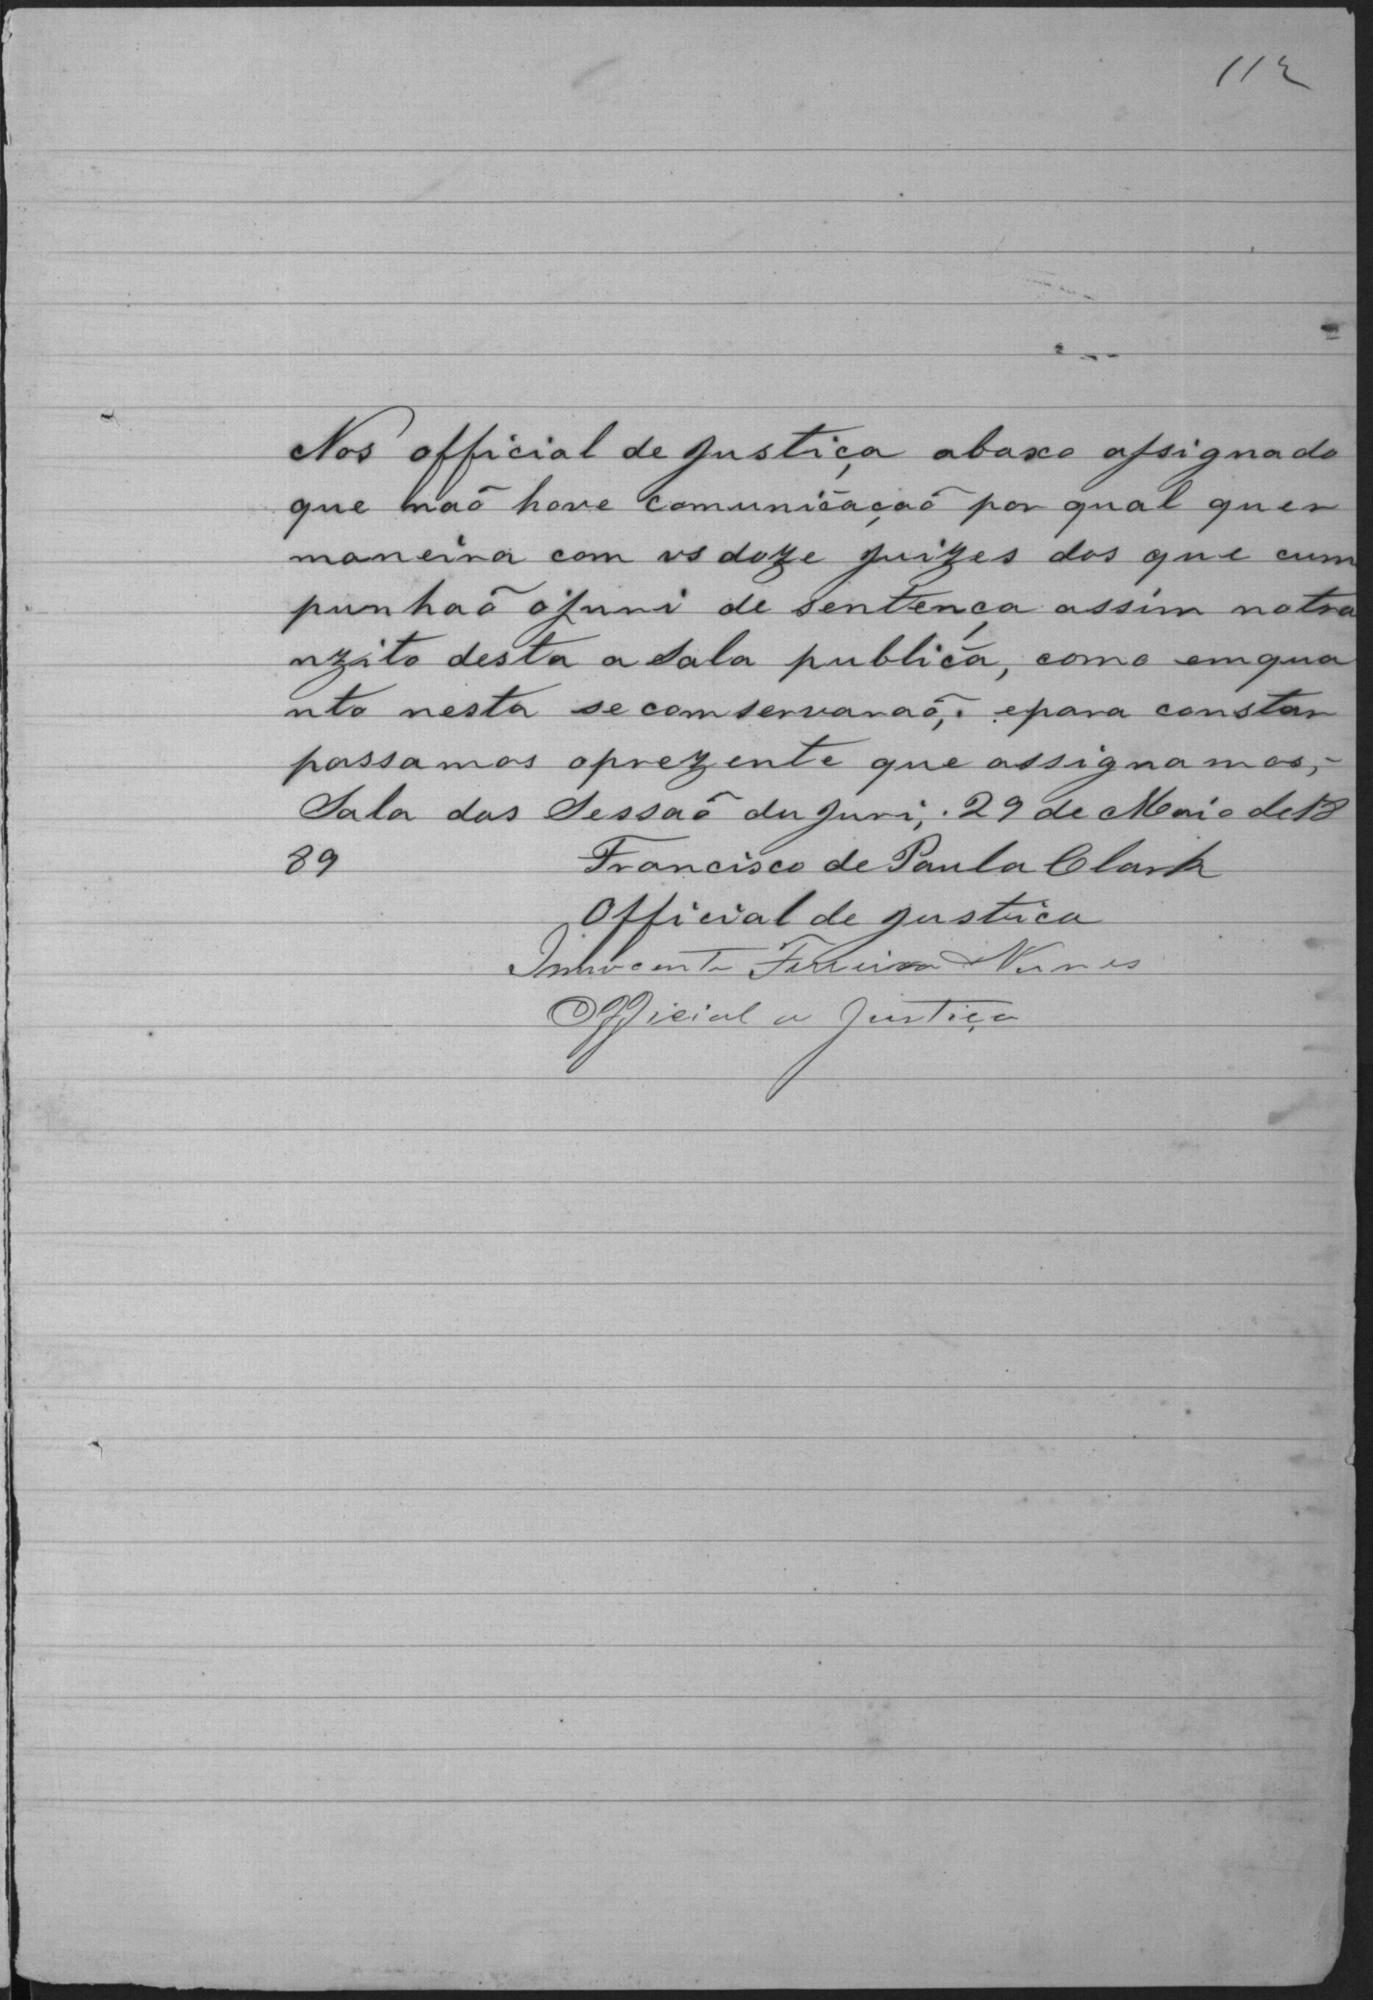 112
Nos official de justiça abaxo assignado
que naõ hove comunicaçaõ por qual quer
maneira com os doze juizes dos que cum
punhaõ ojuri de sentença assim notra
nzito desta a sala publica, como emqua
nto nesta secomservaraõ, epara constar
passamos oprezente que assignamos,-
Sala das Sessaõ du juri, 29 de Maio de 18
89 Francisco de Paula Clark
Official de justica
Innocente Ferreira Nunes
Official a Justiça